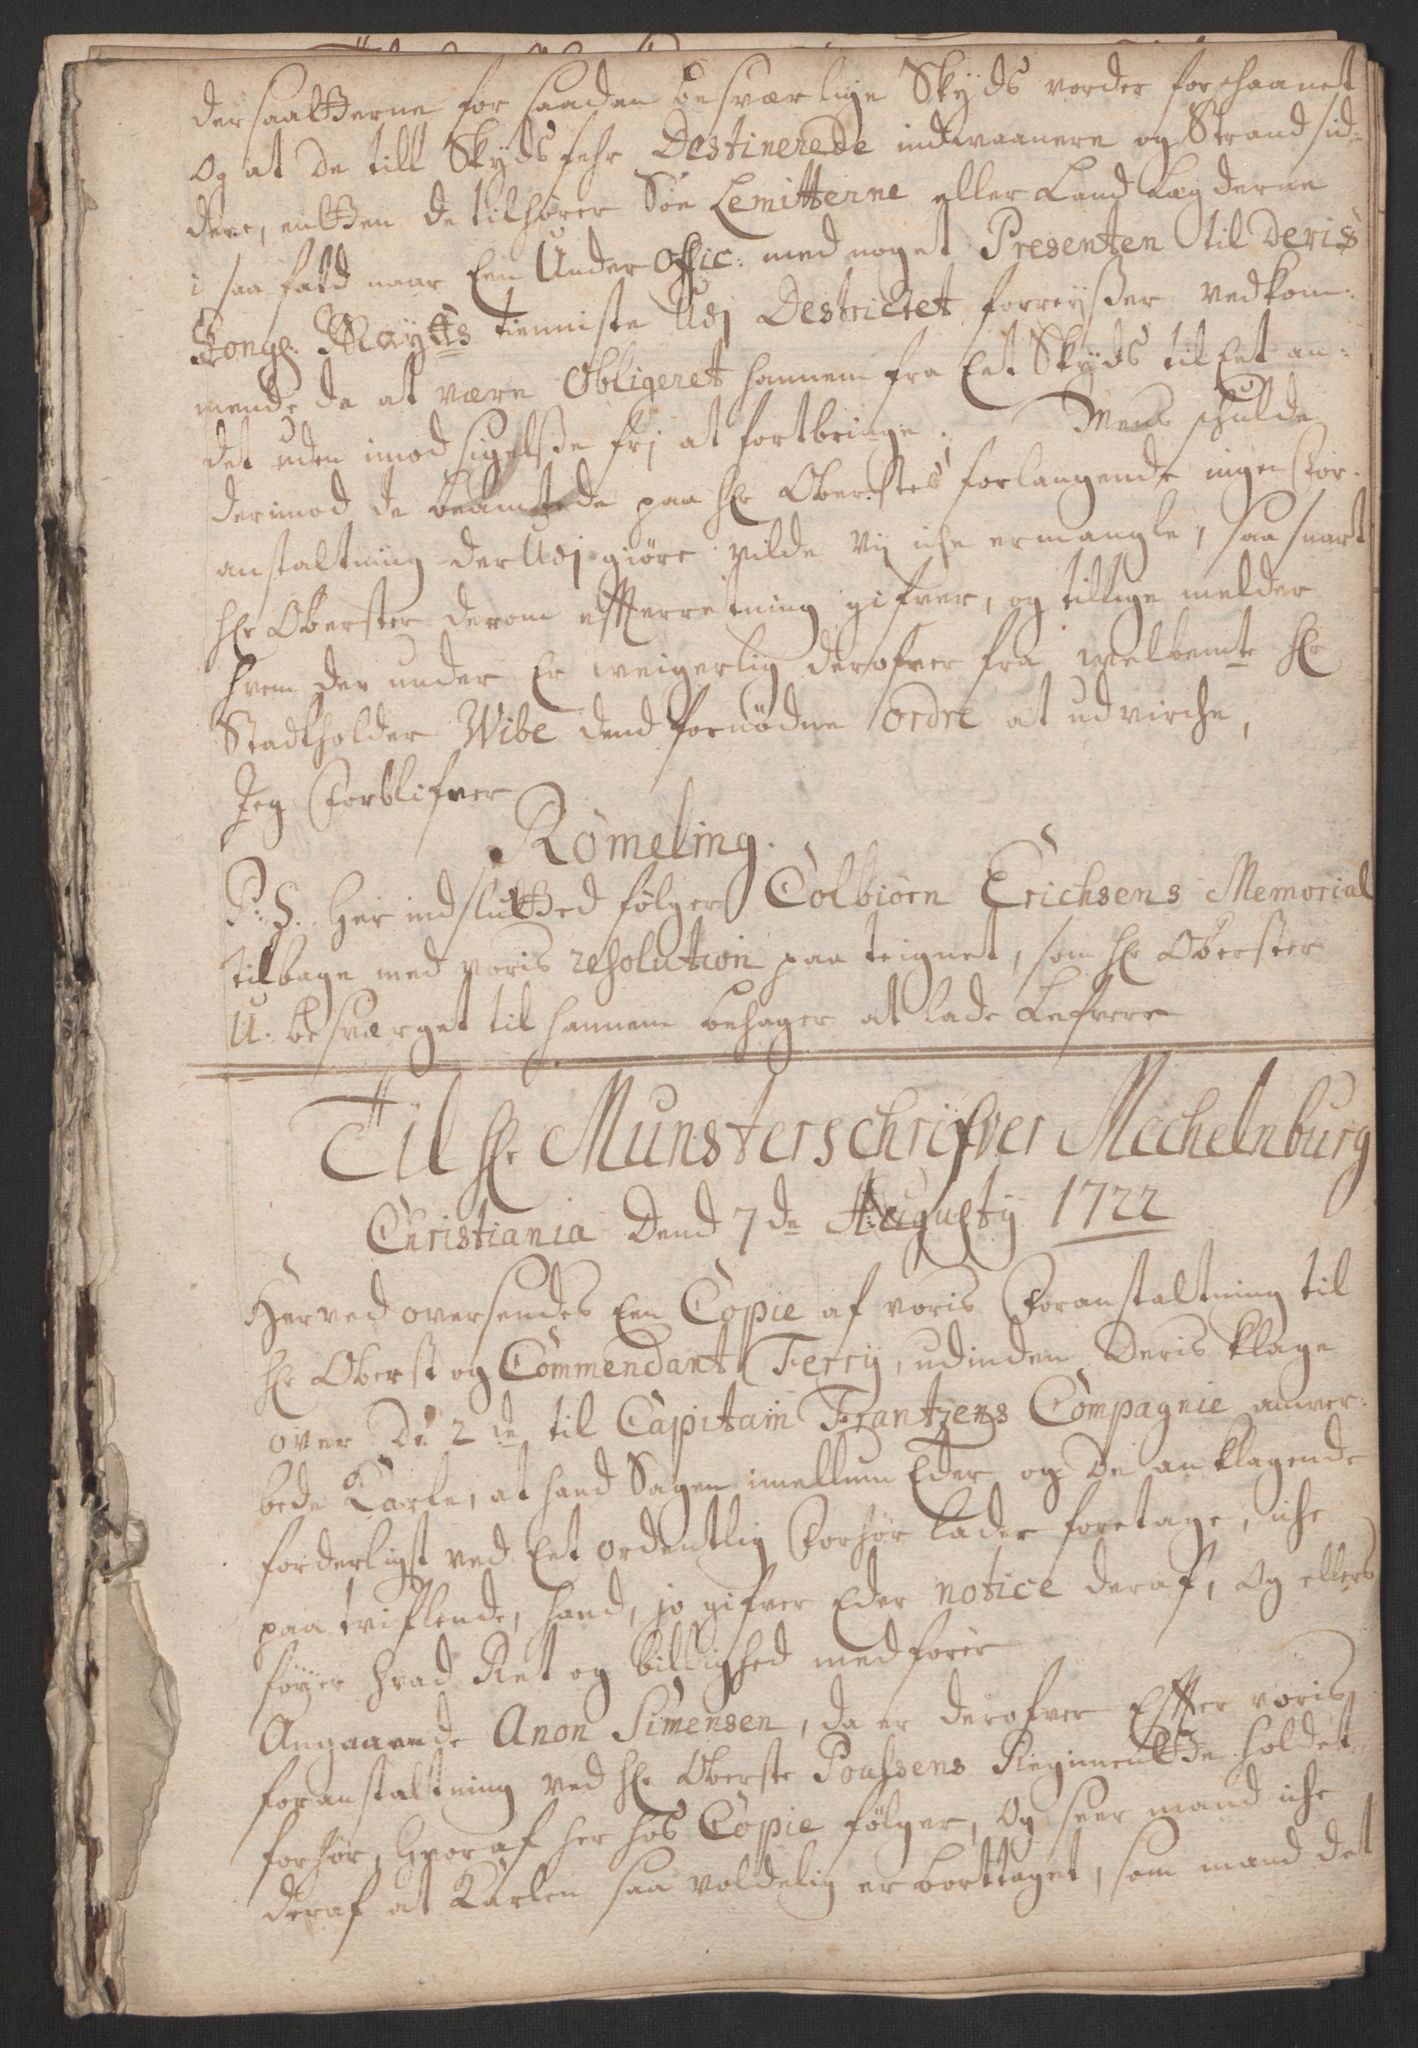 dersaatterne for saadan besværlige Skyds vorder forschaanet
og at de till Skyds fehr Destinerede indvaanere og Strand sid=
dere, enten de tilhører Söe Lemitterne eller Land Lægderne
i saa fald naar Een Under Offic: med noget Presenten til Deris
Kongl. Maytts tienniste Udj Destrictet forreyßer vedkom:
mende da at være Obligeret hannem fra Eet Skyds til Eet an=
det uden imod sigelsße frj at fortbringe. Mens schulde
derimod de beamtede paa Hr Oberstes forlangende ingen For=
anstaltning der Udj giöre vilde Vij iche ermangle, saa snart
Hr Oberster derom efterretning gifver, og tillige melder
hvem der under Er weigerlig derofver fra Welbemte Hr
Stadtholder Wibe dend fornödne ordre at udvirche,
Jeg Forblifver
Römeling.
P: S. Her indslutted følger Colbiörn Erichsens Memorial
tilbage med voris resolution paa teignet, som Hr Oberster
U-besværget til hannem behager at lade Lefvere
Til Hr Munsterschrifver Mechelnburg
Christiania Dend 7de Augusty 1722
Herved oversendes Een Copie af voris Foranstaltning til
Hr Oberst og Commendant Ferry, udinden Deris klage
over De 2de til Capitain Frantzens Compagnie anver=
bede Karle, at hand Sagen imellum Eder og De anklagende
forderligst ved Eet ordentlig Forhör lader foretage, iche
paa tviflende, hand, jo gifver Eder notice deraf, Og ellers
föyer hvad Ret og billighed medförer
Angaaende Anon Simensen, da er derofver Efter voris
foranstaltning ved Hr Oberste Poulsens Regimente holdet
forhör, Hvoraf her hos Copie fölger, Og seer mand iche
deraf at Karlen saa voldelig er borttaget, som mand det